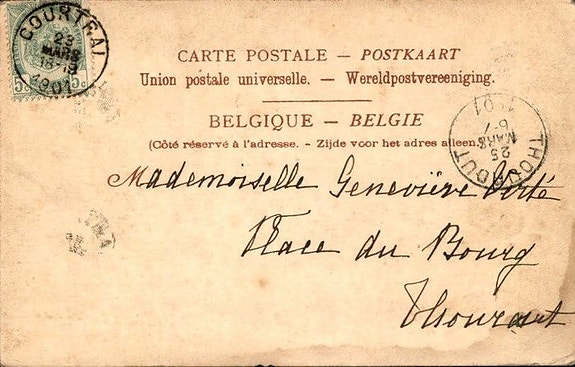 COURTRAI
23
MARS
1901
5c 5c
CARTE POSTALE — POSTKAART
Union postale universelle. — Wereldpostvereeniging.
BELGIQUE — BELGIE
(Côté réservé à l'adresse. - Zijde voor het adres alleen.)
THOUROUT
25
MARS
1901
Mademoiselle Geneviève
Place du Bourg
Thourout